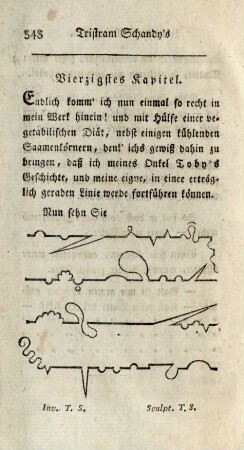 348 Tristram Schandy's
Vierzigstes Kapitel.
Endlich komm' ich nun einmal so recht in
mein Werk hinein! und mit Hülfe einer ve-
getabilischen Diät, nebst einigen kühlenden
Saamenkörnern, denk' ichs gewiß dahin zu
bringen, daß ich meines Onkel Toby's
Geschichte, und meine eigne, in einer erträg-
lich geraden Linie werde fortführen können.
Nun sehn Sie
Inv. T. S. Sculpt. T. S.